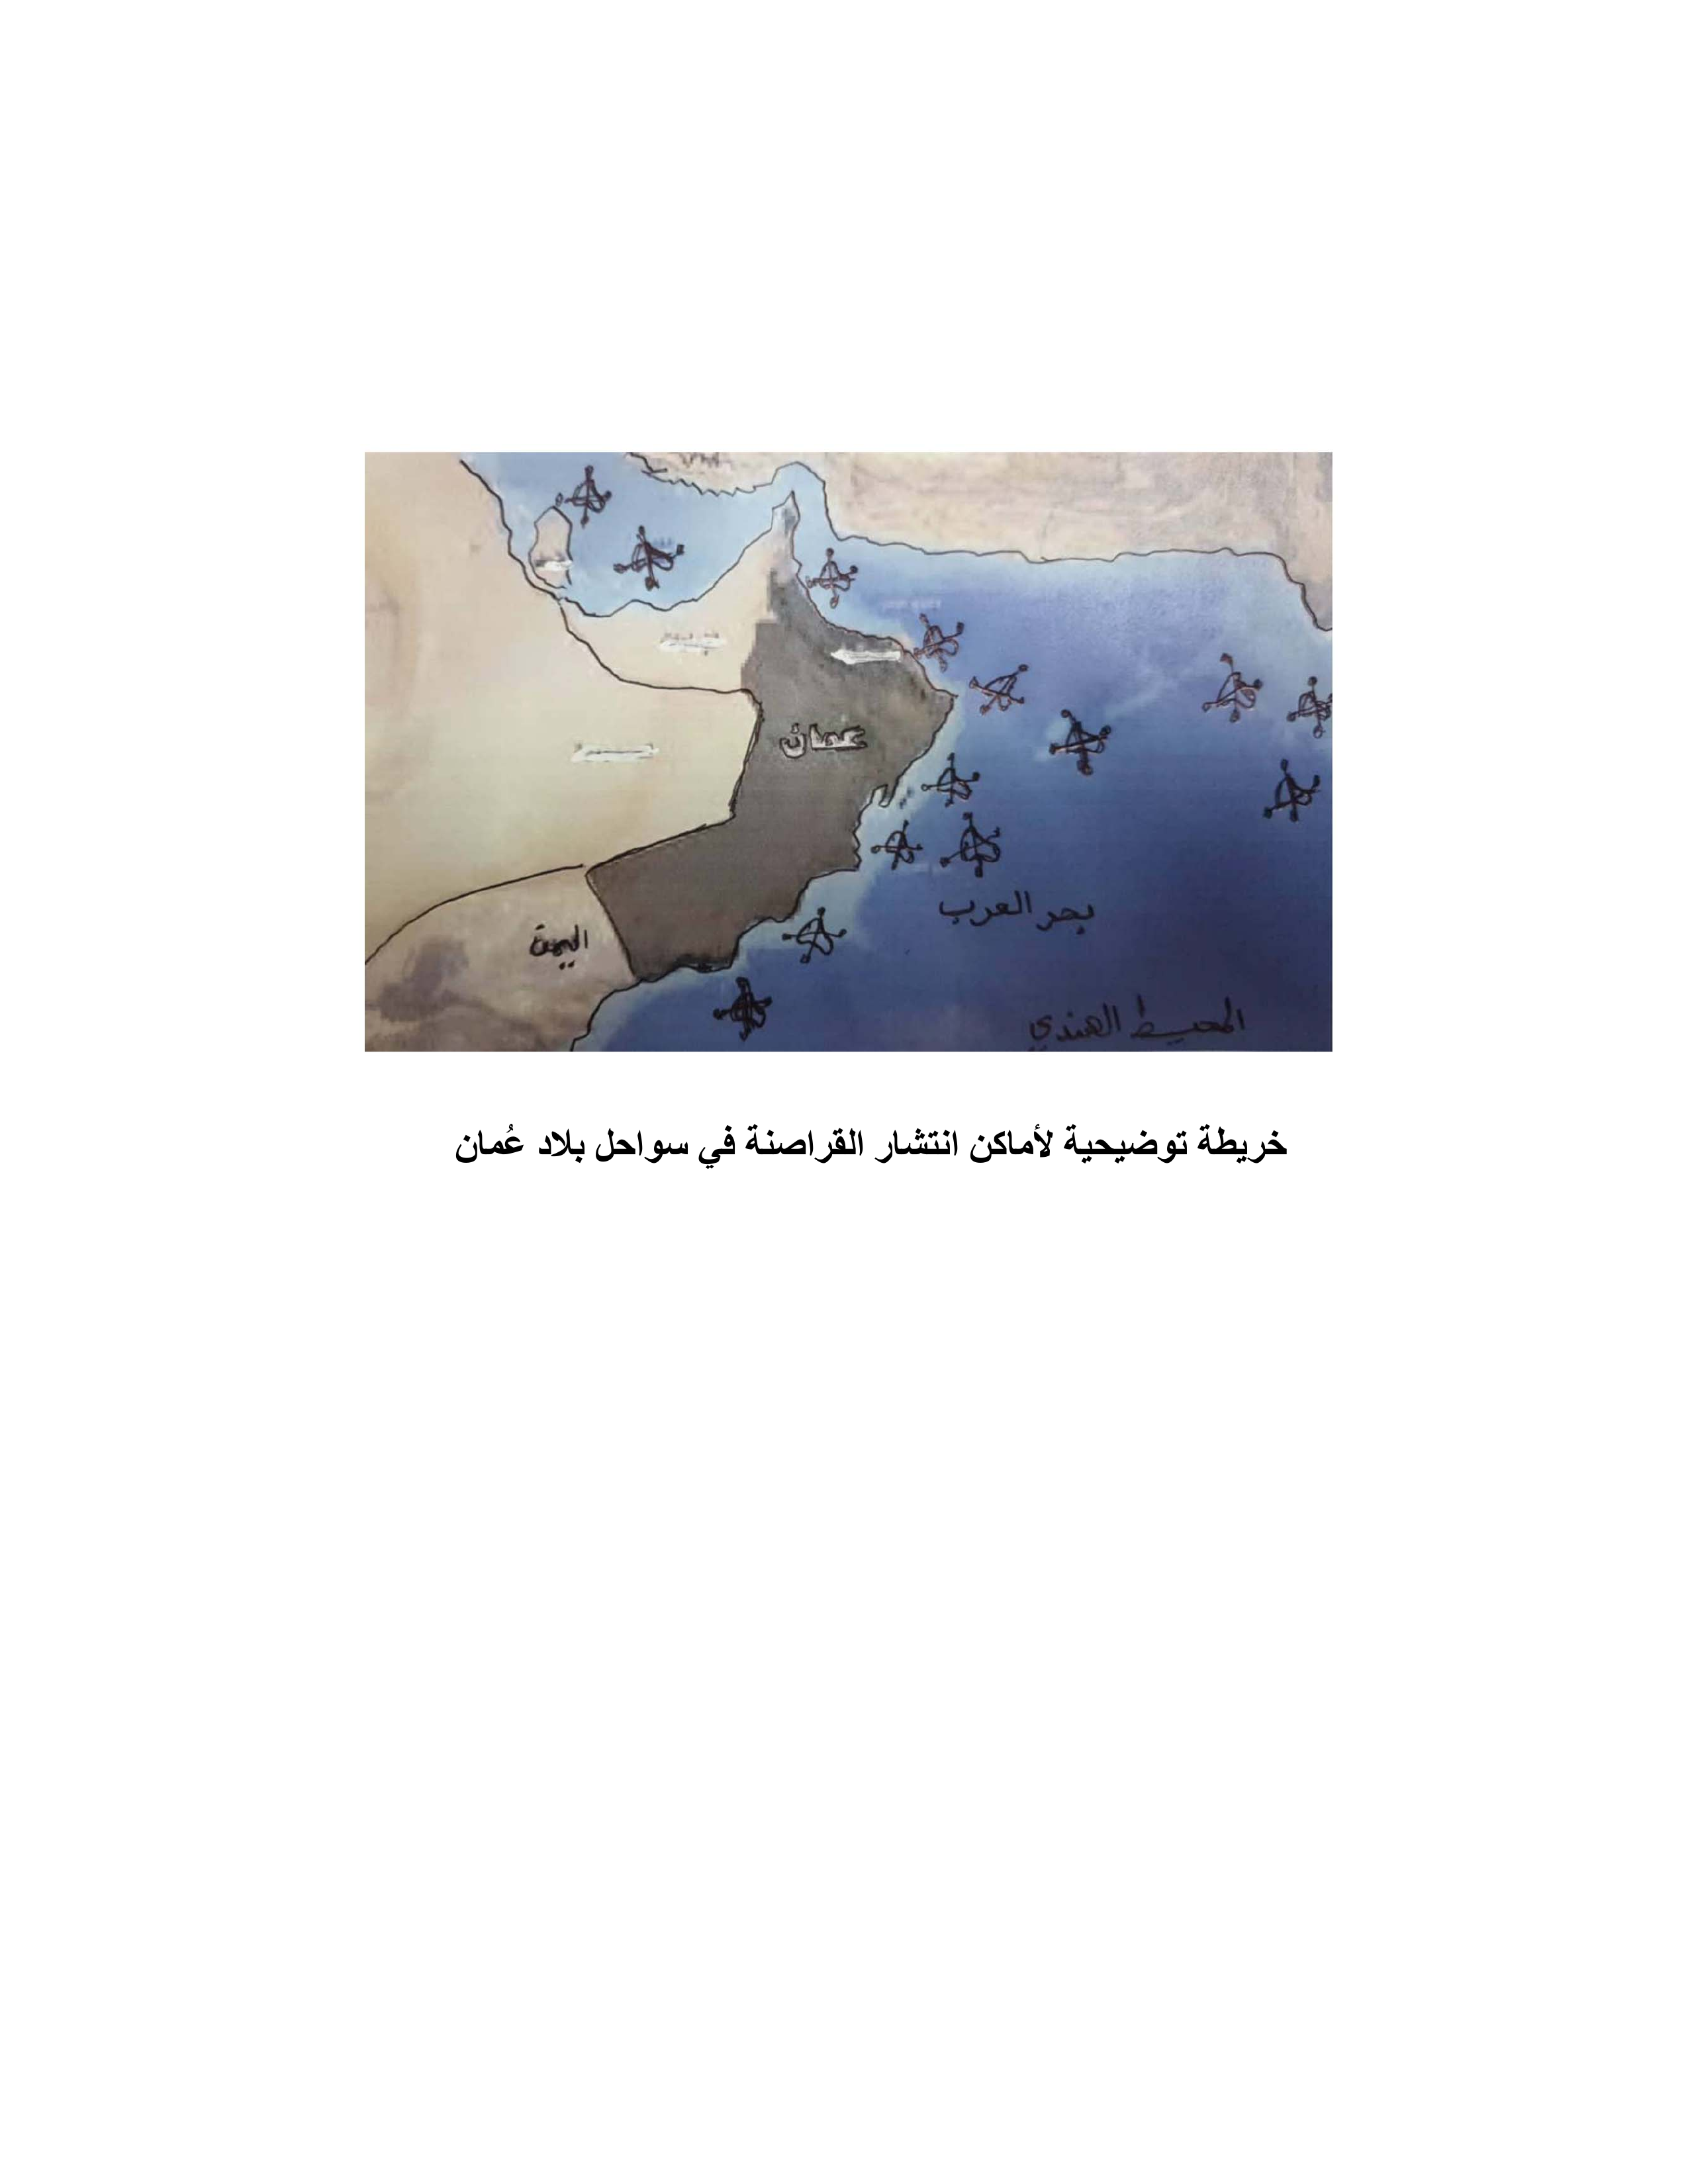 عمان
اليمن
بحر العرب
المحيط الهندي
خريطة توضيحية لأماكن انتشار القراصنة في سواحل بلاد عُمان